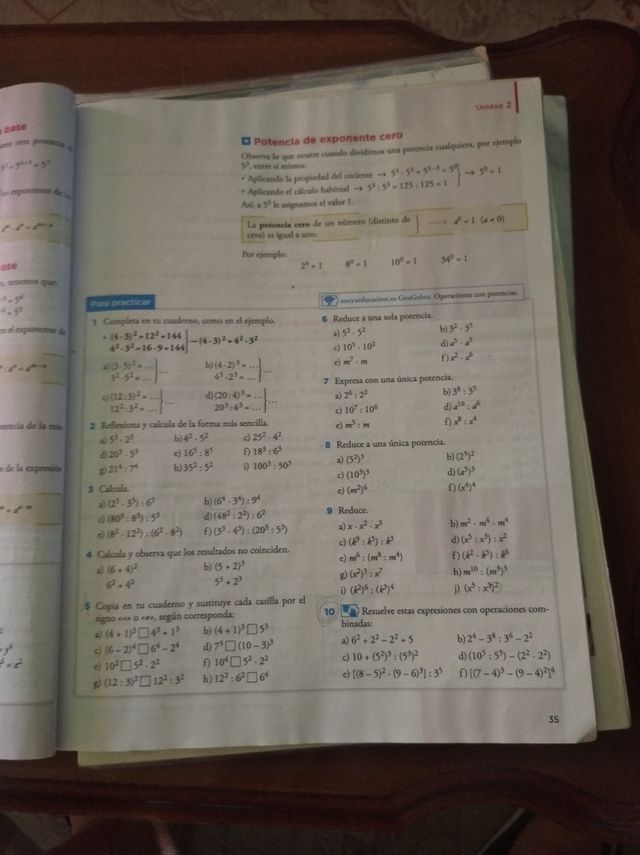 Unidad 2
base
Potencia de exponente cero
Observa lo que ocurre cuando dividimos una potencia cualquiera, por ejemplo
5³, entre sí misma:
• Aplicando la propiedad del cociente → 5³ : 5³ = 5³⁻³ = 5⁰
• Aplicando el cálculo habitual → 5³ : 5³ = 125 : 125 = 1
→ 5⁰ = 1
Así, a 5⁰ le asignamos el valor 1.
La potencia cero de un número (distinto de
cero) es igual a uno.
→ a⁰ = 1 (a ≠ 0)
Por ejemplo:
2⁰ = 1 8⁰ = 1 10⁰ = 1 34⁰ = 1
Para practicar
anayaeducacion.es GeoGebra. Operaciones con potencias.
1 Completa en tu cuaderno, como en el ejemplo.
• (4 · 3)² = 12² = 144
4² · 3² = 16 · 9 = 144
→ (4 · 3)² = 4² · 3²
a) (3 · 5)² = …
3² · 5² = … …
b) (4 · 2)³ = …
4³ · 2³ = … …
c) (12 : 3)² = …
12² : 3² = … …
d) (20 : 4)³ = …
20³ : 4³ = … …
2 Reflexiona y calcula de la forma más sencilla.
a) 5³ · 2³ b) 4² · 5² c) 25² · 4²
d) 20³ : 5³ e) 16⁵ : 8⁵ f) 18³ : 6³
g) 21⁴ : 7⁴ h) 35² : 5² i) 100³ : 50³
3 Calcula.
a) (2⁵ · 3⁵) : 6⁵ b) (6⁴ · 3⁴) : 9⁴
c) (80³ : 8³) : 5³ d) (48² : 2²) : 6²
e) (8² · 12²) : (6² · 8²) f) (3³ · 4³) : (20³ : 5³)
4 Calcula y observa que los resultados no coinciden.
a) (6 + 4)² b) (5 + 2)³
6² + 4² 5³ + 2³
5 Copia en tu cuaderno y sustituye cada casilla por el
signo «=» o «≠», según corresponda:
a) (4 + 1)³ □ 4³ + 1³ b) (4 + 1)³ □ 5³
c) (6 – 2)⁴ □ 6⁴ – 2⁴ d) 7³ □ (10 – 3)³
e) 10² □ 5² · 2² f) 10⁴ □ 5² · 2²
g) (12 : 3)² □ 12² : 3² h) 12² : 6² □ 6⁴
6 Reduce a una sola potencia.
a) 5² · 5² b) 3² · 3⁵
c) 10⁵ · 10² d) a⁵ · a⁵
e) m⁷ · m f) x² · x⁶
7 Expresa con una única potencia.
a) 2⁶ : 2² b) 3⁸ : 3⁵
c) 10⁷ : 10⁶ d) a¹⁰ : a⁶
e) m⁵ : m f) x⁸ : x⁴
8 Reduce a una única potencia.
a) (5²)³ b) (2⁵)²
c) (10³)³ d) (a⁵)³
e) (m²)⁶ f) (x⁴)⁴
9 Reduce.
a) x · x² · x³ b) m² · m⁴ · m⁴
d) (x⁵ : x³) : x²
e) m⁶ : (m⁸ : m⁴) f) (k² · k⁵) : k⁶
g) (x²)⁵ : x⁷ h) m¹⁰ : (m³)³
i) (k²)⁶ : (k³)⁴ j) (x⁵ : x³)²
10 Resuelve estas expresiones con operaciones com-
binadas:
a) 6² + 2² – 2² + 5 b) 2⁴ – 3⁸ : 3⁶ – 2²
c) 10 + (5²)³ : (5³)² d) (10⁵ : 5⁵) – (2² · 2²)
e) [(8 – 5)² · (9 – 6)³] : 3⁵ f) [(7 – 4)³ – (9 – 4)²]⁴
35